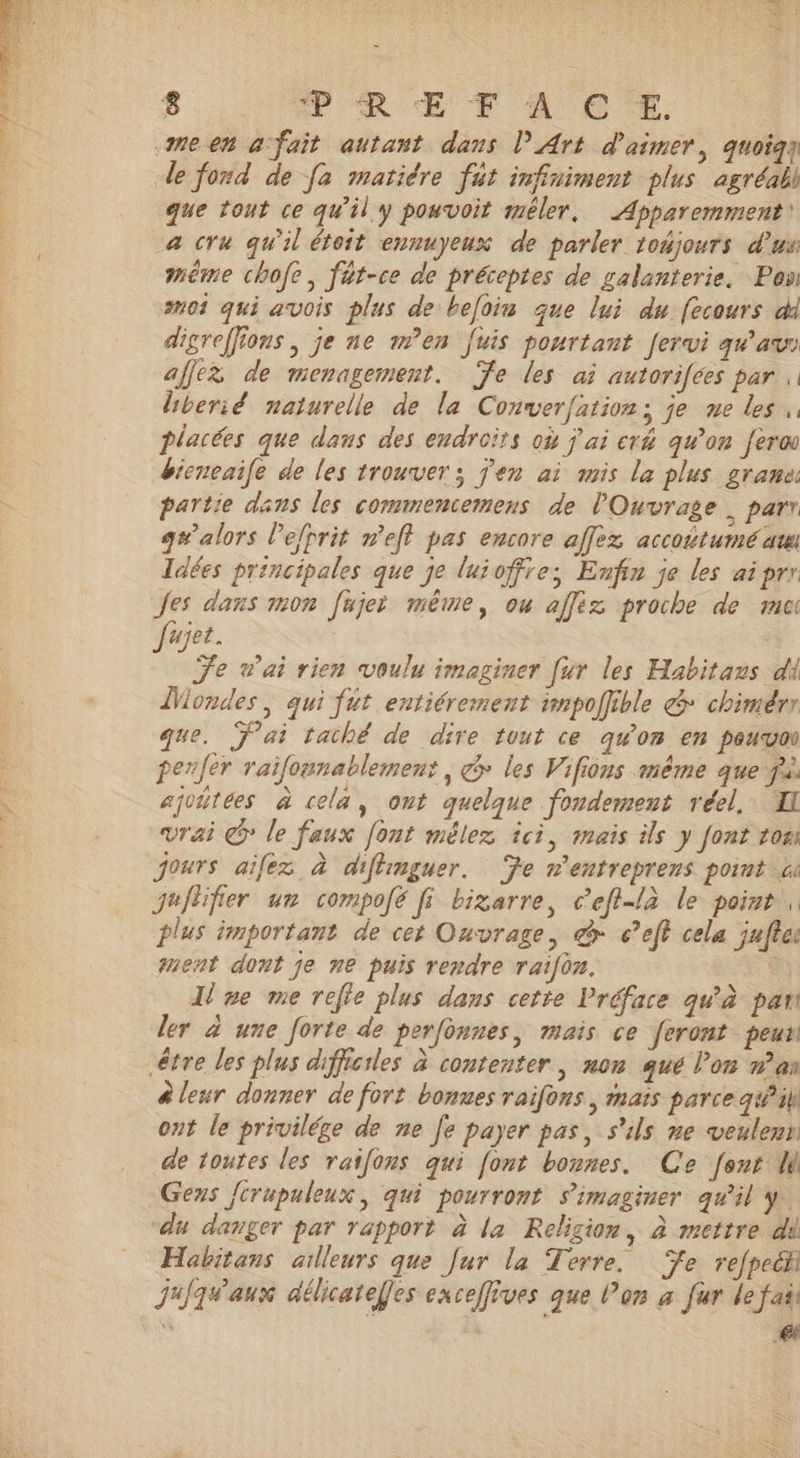 8 PREFACE.
me en a fait autant dans l'Art d'aimer, quoiq
le fond de ſa matiére fût infiniment plus agréabl
que tout ce qu'il y pouvoit mêler. Apparemment
a cru qu'il étoit ennuyeux de parler toûjours d'u
même choſe, fût-ce de préceptes de galanterie. Pou
moi qui avois plus de beſoin que lui du ſecours d
digreſſions, je ne m'en ſuis pourtant ſervi qu'av
aſſez de menagement. Je les ai autoriſées par
liberié naturelle de la Converſation; je ne les
placées que dans des endroits où j'ai crû qu'on ſero
bieneaiſe de les trouver; j'en ai mis la plus gran
partie dans les commencemens de l'Ouvrage, par
qu'alors l'eſprit n'eſt pas encore aſſez accoûtumé au
Idées principales que je lui offre; Enfin je les ai pr
ſes dans mon ſujet même, ou aſſez proche de m
ſujet.
Je n'ai rien voulu imaginer ſur les Habitans d
Mondes, qui fût entiérement impoſſible & chimér
que. J'ai taché de dire tout ce qu'on en pouvo
penſer raiſonnablement, & les Viſions même que j'
ajoûtées à cela, ont quelque fondement réel. Il
vrai & le faux ſont mêlez ici, mais ils y ſont to
jours aiſez à diſtinguer. Je n'entreprens point
juſtifier un compoſé ſi bizarre, c'eſt-là le point
plus important de cet Ouvrage, & c'eſt cela juſte
ment dont je ne puis rendre raiſon.
Il ne me reſte plus dans cette Préface qu'à par
ler à une ſorte de perſonnes, mais ce ſeront peu
être les plus difficiles à contenter, non qué l'on n'a
à leur donner de fort bonnes raiſons, mais parce qu'il
ont le privilége de ne ſe payer pas, s'ils ne veulen
de toutes les raiſons qui ſont bonnes. Ce ſont l
Gens ſcrupuleux, qui pourront s'imaginer qu'il y
du danger par rapport à la Religion, à mettre d
Habitans ailleurs que ſur la Terre. Je reſpect
juſqu'aux délicateſſes exceſſives que l'on a ſur le fai